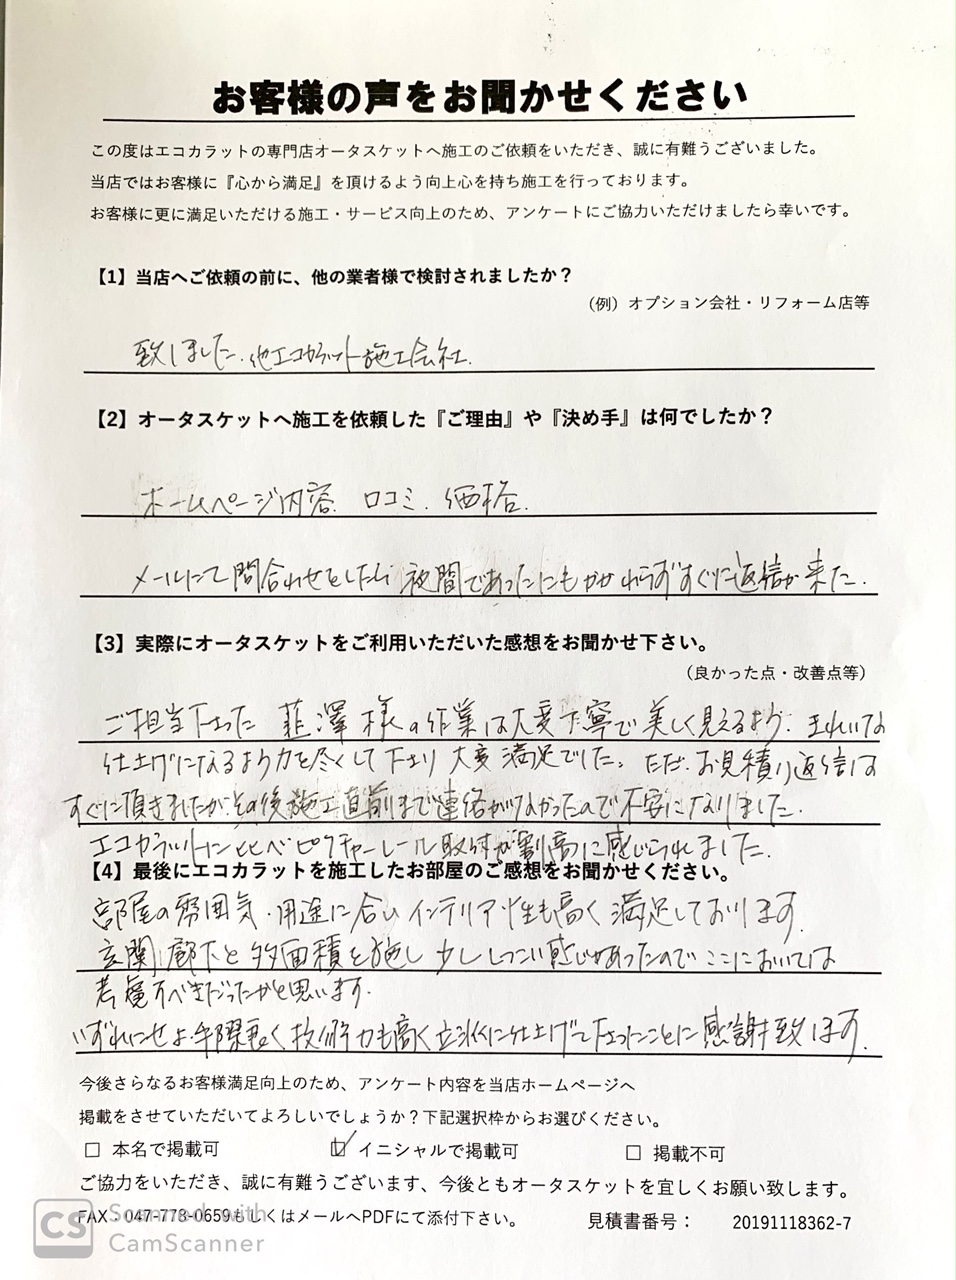 お客様の声をお聞かせください
この度はエコカラットの専門店オータスケットへ施工のご依頼をいただき、誠に有難うございました。
当店ではお客様に『心から満足』を頂けるよう向上心を持ち施工を行っております。
お客様に更に満足いただける施工・サービス向上のため、アンケートにご協力いただけましたら幸いです。
【1】当店へご依頼の前に、他の業者様で検討されましたか？
（例）オプション会社・リフォーム店等
致しました. 他エコカラット施工会社.
【2】オータスケットへ施工を依頼した『ご理由』や『決め手』は何でしたか？
ホームページ内容. 口コミ. 価格.
メールにて問合わせをしたら 夜間であったにもかかわらずすぐに返信が来た.
【3】実際にオータスケットをご利用いただいた感想をお聞かせ下さい。
（良かった点・改善点等）
ご担当下さった 韮澤様の作業は大変丁寧で美しく見えるよう. きれいな
仕上げになるよう力を尽くして下さり 大変満足でした。ただ. お見積り返信は
すぐに頂きましたが. その後施工直前まで連絡がなかったので不安になりました.
エコカラットに比べピクチャーレール取付が割高に感じられました.
【4】最後にエコカラットを施工したお部屋のご感想をお聞かせください。
部屋の雰囲気・用途に合い インテリア性も高く 満足しております.
玄関. 廊下と 多面積を施し 少ししつこい感じがあったので ここにおいては
考慮すべきだったかと思います.
いずれにせよ. 手際良く 技術力も高く 立派に仕上げて下さったことに感謝致します.
今後さらなるお客様満足向上のため、アンケート内容を当店ホームページへ
掲載をさせていただいてよろしいでしょうか？下記選択枠からお選びください。
□ 本名で掲載可 ☑ イニシャルで掲載可 □ 掲載不可
ご協力をいただき、誠に有難うございます、今後ともオータスケットを宜しくお願い致します。
FAX：047-778-0659もしくはメールへPDFにて添付下さい。 見積書番号： 20191118362-7
CS Scanned with CamScanner